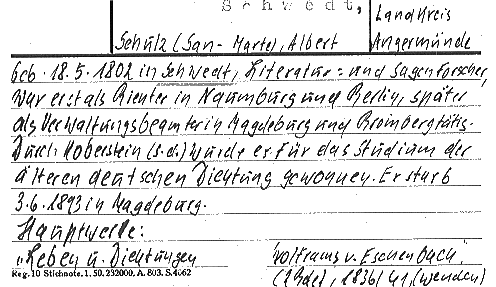 Schwedt,
Landkreis
Schulz (San-Marte), Albert
Angermünde
Geb. 18.5.1802 in Schwedt, Literatur- und Sagenforscher,
war erst als Richter in Naumburg und Berlin, später
als Verwaltungsbeamter in Magdeburg und Bromberg tätig.
Durch Koberstein (s.d.) wurde er für das Studium der
älteren deutschen Dichtung gewonnen. Er starb
3.6.1893 in Magdeburg.
Hauptwerke:
„Leben u. Dichtungen Wolframs v. Eschenbach“
Reg. 10 Stichnote. 1. 50. 232000. A. 803. S. 4062
(2 Bde), 1836/41, (wenden)